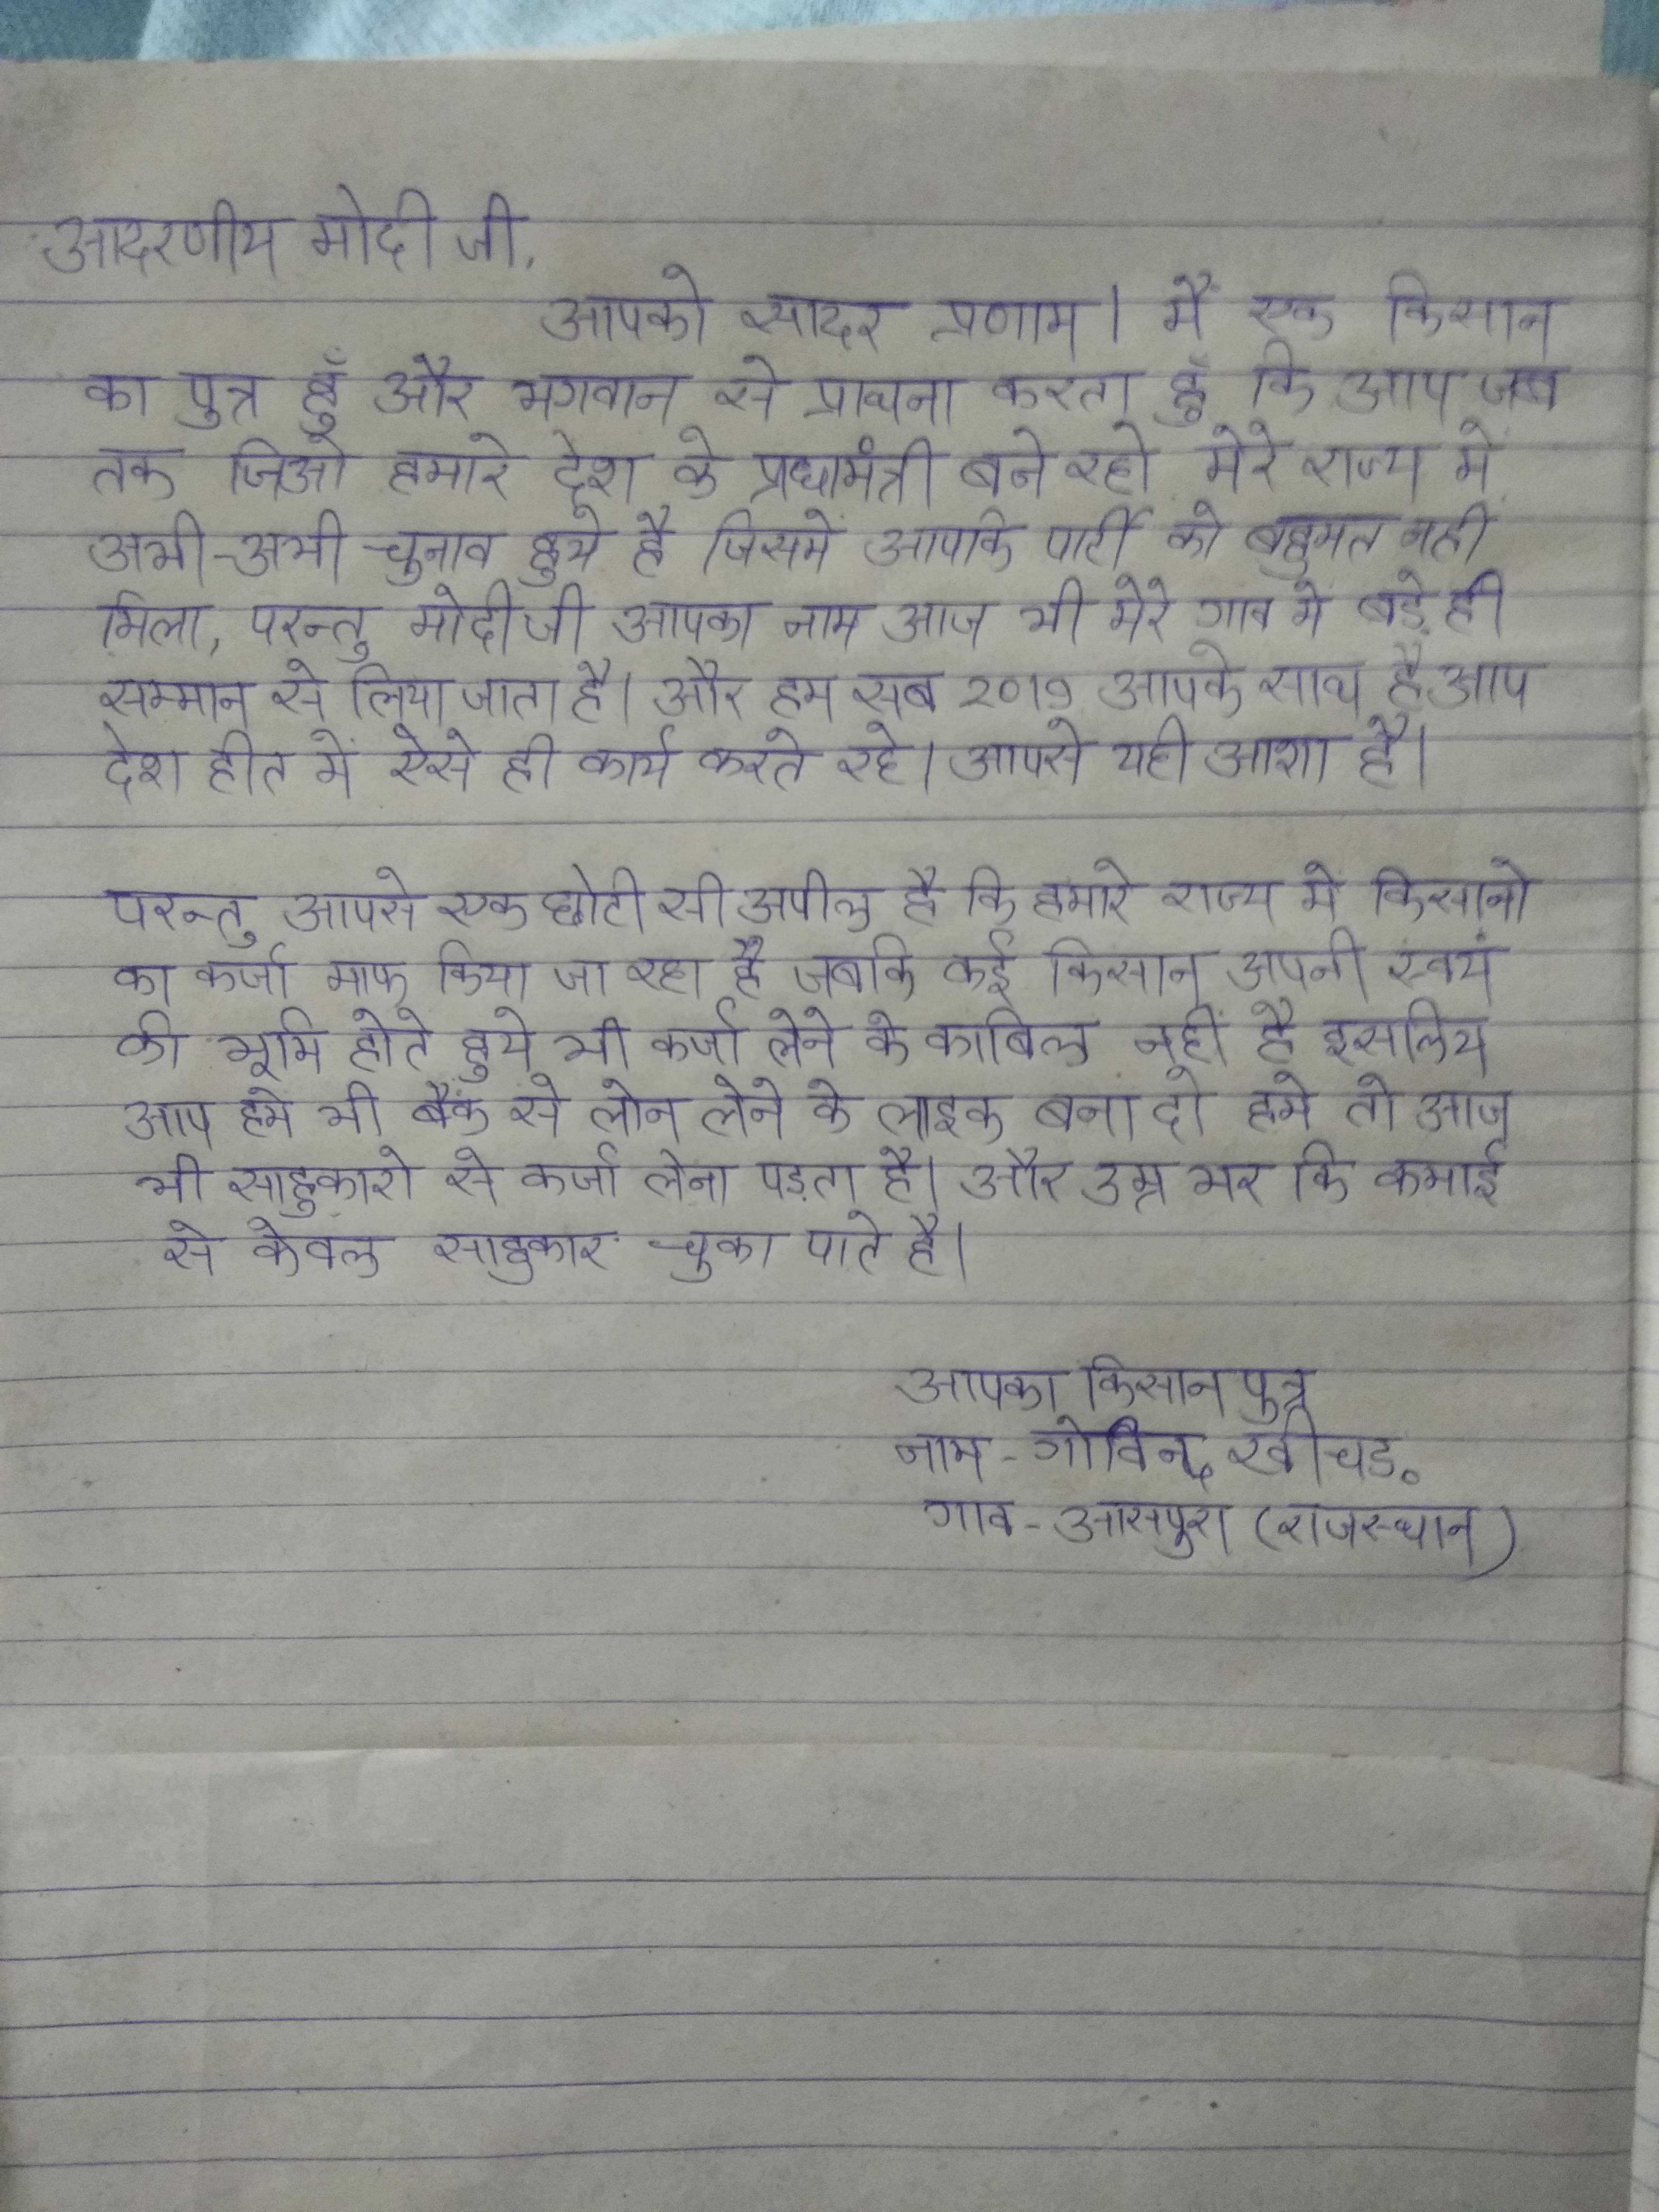 आदरणीय मोदी जी,
आपको सादर प्रणाम। मैं एक किसान
का पुत्र हुँ और भगवान से प्राथना करता हुँ कि आप जब
तक जिओ हमारे देश के प्रधामंत्री बने रहो मेरे राज्य मे
अभी-अभी चुनाव हुये है जिसमे आपकि पार्टी को बहुमत नही
मिला, परन्तु मोदीजी आपका नाम आज भी मेरे गाव मे बड़े ही
सम्मान से लिया जाता है। और हम सब २०१९ आपके साथ है आप
देश हीत में ऐसे ही कार्य करते रहे। आपसे यही आशा है।
परन्तु आपसे एक छोटी सी अपील है कि हमारे राज्य मे किसानो
का कर्जा माफ किया जा रहा है जबकि कई किसान अपनी स्वयं
की भूमि होते हुये भी कर्जा लेने के काबिल नहीं है इसलिय
आप हमे भी बैंक से लोन लेने के लाइक बना दो हमे तो आज
भी साहुकारो से कर्जा लेना पड़ता है। और उम्र भर कि कमाई
से केवल साहुकार चुका पाते है।
आपका किसान पुत्र
नाम - गोविन्द खीचड़
गाव - आसपुरा (राजस्थान)